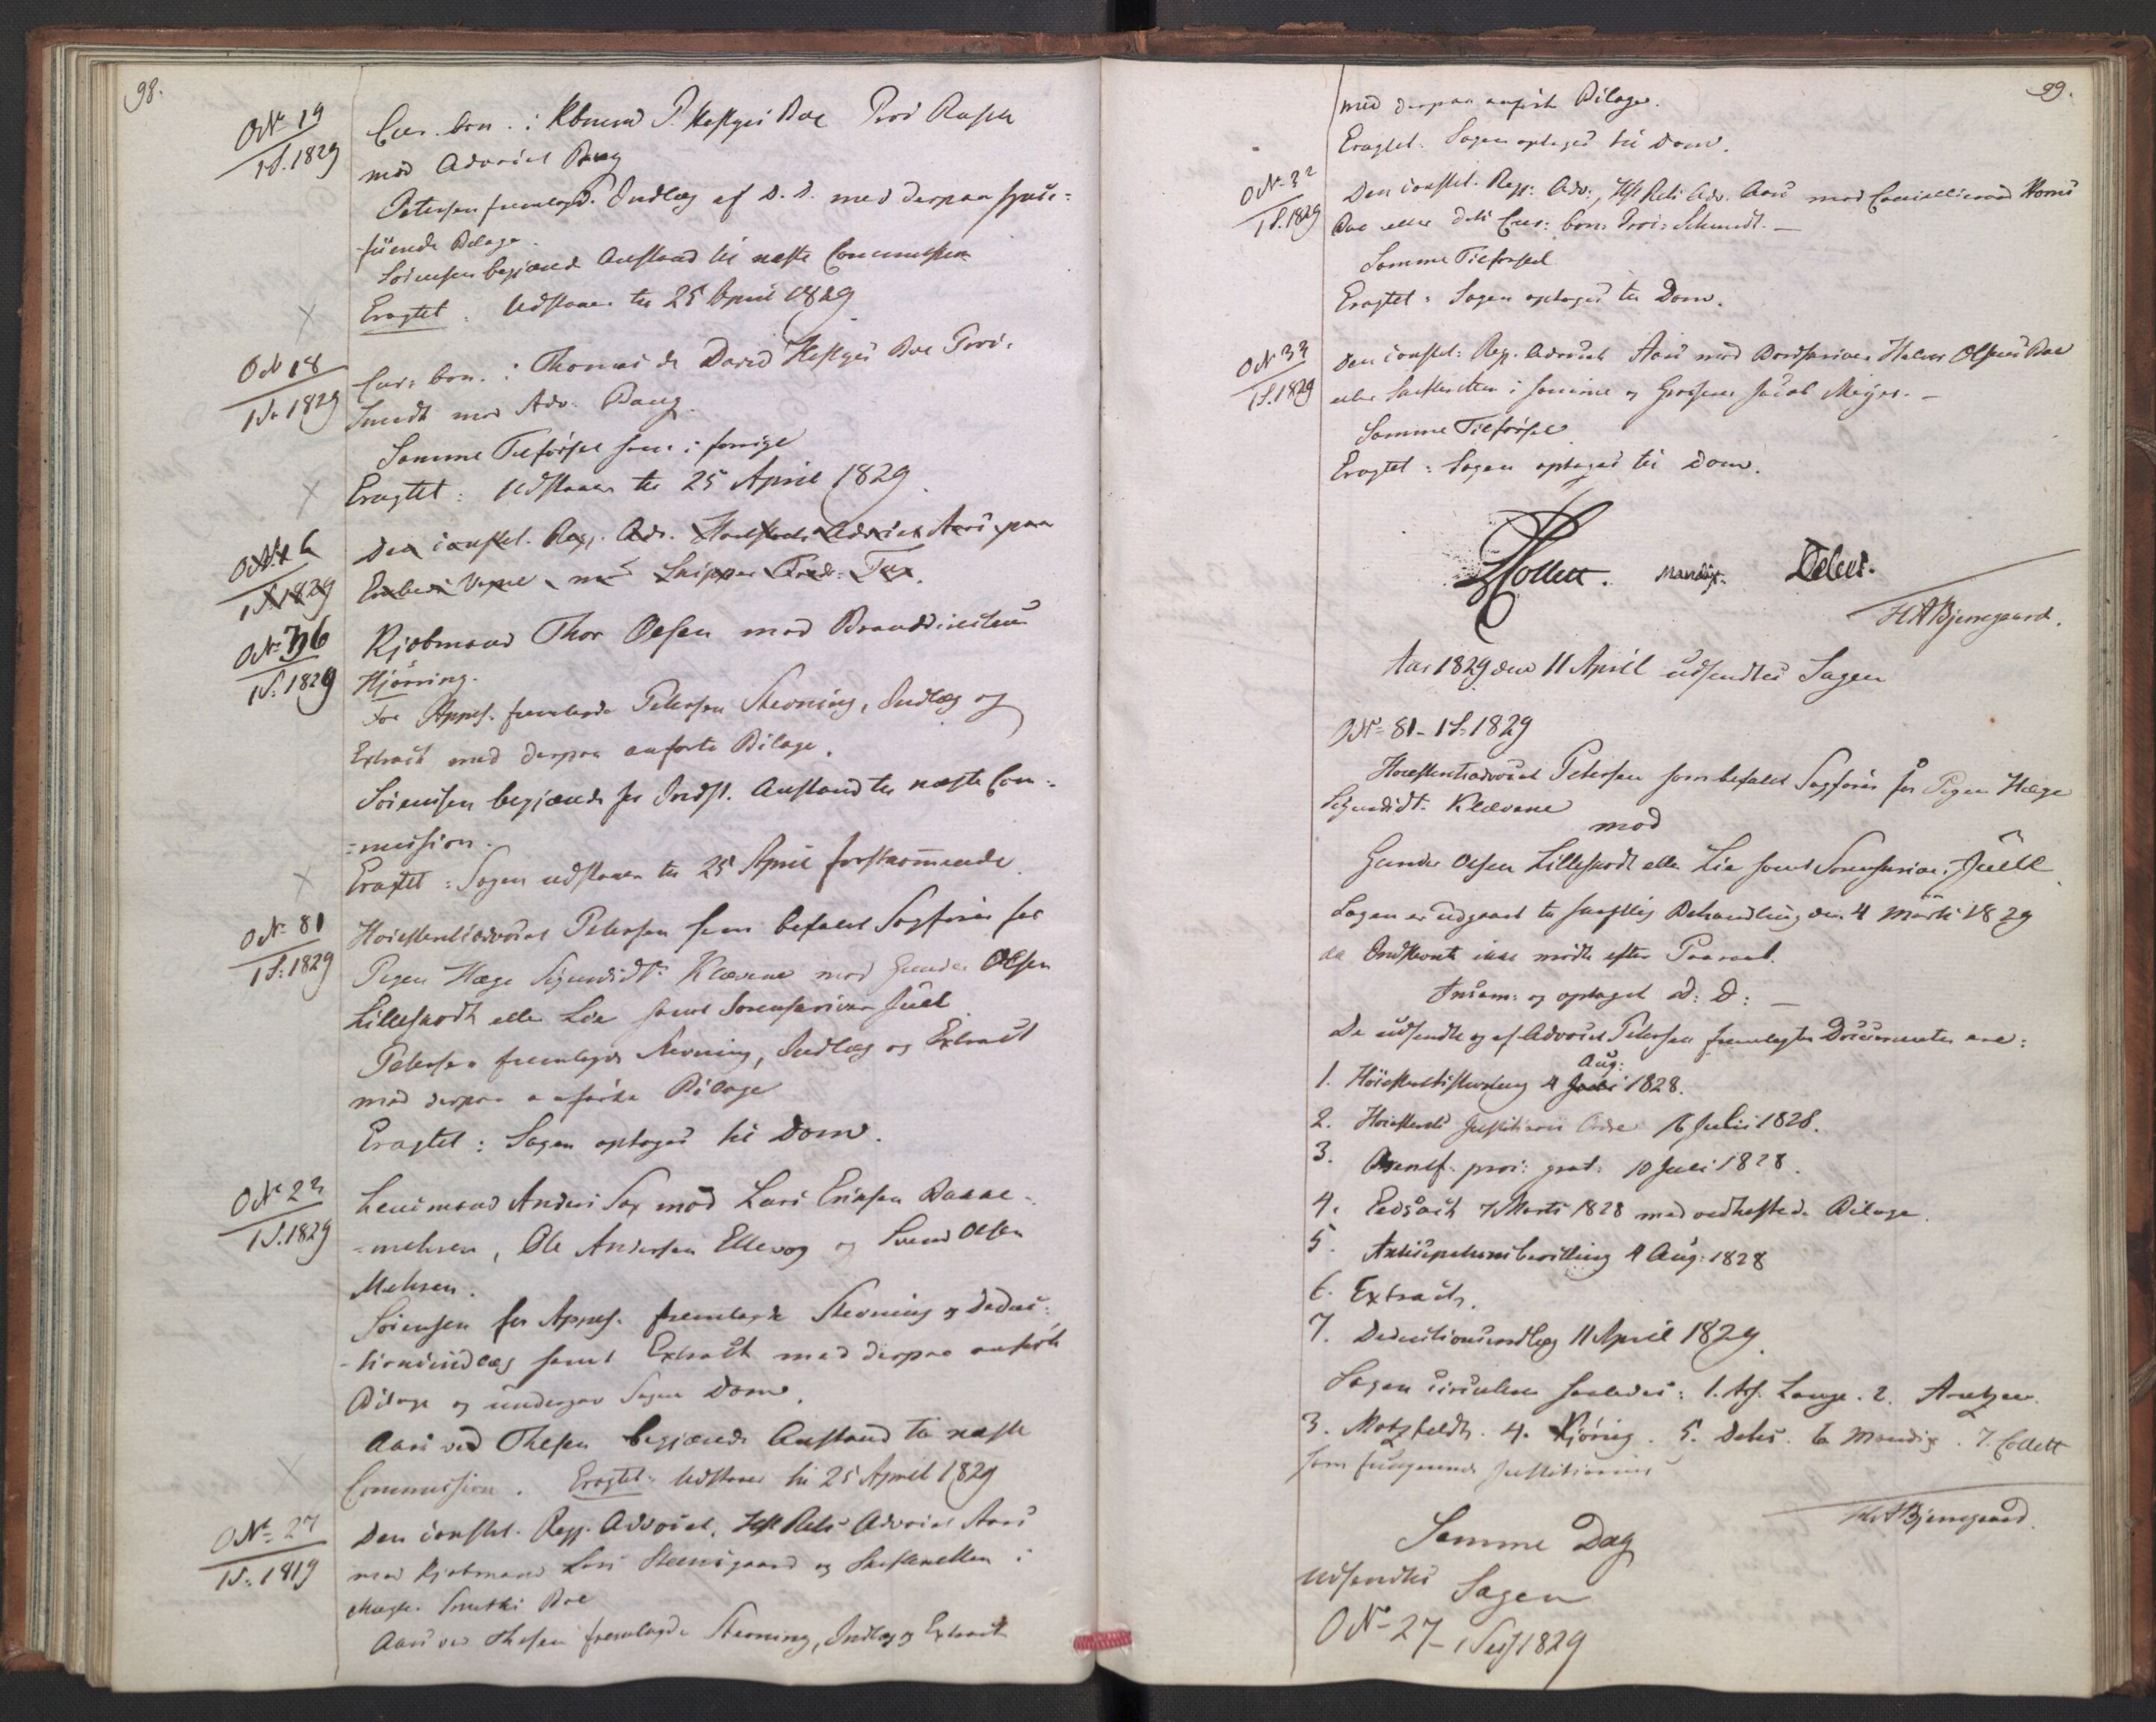 98.
O№ 19
1 S. 1829
Cur. bon. i Kbmand P. Heftyes Boe Proc Rasch
mod Advocat Bang
Petersen fremlagde Indlæg af D. D. med derpaa speci-
ficerede Bilage.
Sørensen begjærede Anstand til næste Commission
Eragtet. Udstaaer til 25 April 1829
O№ 18
1 S. 1829
Cur. bon. i Thomas de David Heftyes Boe Proc.
Smidt mod Adv. Bang.
Samme Tilførsel som i forrige
Eragtet: Udstaaer til 25 April 1829.
1 S. 1829
Den constit. Regj. Adv. Høiesterets Advocat Aars paa
Embeds Vegne mod Skipper Fredr. Fax.
O№ 36
1 S. 1829
Kjøbmand Thor Olsen mod Branddirecteur
Hjørring.
For Appel. fremlagde Petersen Stevning, Indlæg og
Extract med derpaa anførte Bilage.
Sørensen begjærede for Indst. Anstand til næste Com-
-mission.
Eragtet: Sagen udstaaer til 25 April førstkommende.
O№ 81
1 S. 1829
Høiesteretsadvocat Petersen som befalet Sagfører for
Pigen Hæge Sigurdsdt. Klævene mod Gunder Olsen
Lillefjordt eller Lie samt Sorenskriver Juell
Petersen fremlagde Stevning, Indlæg og Extract
med derpaa anførte Bilage
Eragtet: Sagen optages til Dom.
O№ 22
1 S. 1829
Lensmand Anders Sax mod Lars Eriksen Bakke-
-mehren, Ole Andersen Ellevog og Svend Olsen
Mehren.
Sørensen for Appel. fremlagde Stevning og Deduc-
-tionsindlæg samt Extract med derpaa anførte
Bilage og undergav Sagen Dom.
Aars ved Thesen begjærede Anstand til næste
Commission. Eragtet: Udstaaer til 25 April 1829
O№ 27
1 S. 1819
Den constit. Regj. Advocat, HstRets Advocat Aars
mod Kjøbmand Lars Steensgaard og Skifteretten i
Boe
Aars ved Thesen fremlagde Stevning, Indlæg og Extract
99.
med derpaa anførte Bilage.
Eragtet. Sagen optages til Dom.
O№ 32
1 S. 1829
Den constit. Regj. Adv., HstRets Adv. Aars mod Cancelliraad Horns
Boe eller dets Cur. bon. Proc. Schmidt. —
Samme Tilførsel
Eragtet: Sagen optages til Dom.
O№ 33
1 S. 1829
Den constit. Reg. Advocat Aars mod Bordskriver Halvor Olsens Boe
eller Skifteretten i samme og Grosserer Jacob Meyer. —
Samme Tilførsel
Eragtet: Sagen optages til Dom.
Collett. Mandix. Debes.
HABjerregaard.
Aar 1829 den 11 April udsendtes Sagen
O№ 81 - 1 S. 1829
Høiesteretsadvocat Petersen som befalet Sagfører for Pigen Hæge
Sigurdsdt. Klævene
mod
Gunder Olsen Lillefjordt eller Lie samt Sorenskriver Juell.
Sagen er udgaaet til skriftlig Behandling den 4 Marts 1829
da Indstevnte ikke mødte efter Paaraab.
Incam. og optaget d: D: —
De udsendte og af Advocat Petersen fremlagte Documenter ere:
Aug:
1. Høiesteretsstevning 4 Juli 1828.
2. Høiesterets Justitiarii Ordre 16 Julii 1828.
3. Benef. proc. grat. 10 Juli 1828.
4. Eedsact 7 Marts 1828 med vedheftede Bilage.
5. Anticipationsbevilling 4 Aug. 1828
6. Extract.
7. Deductionsindlæg 11 April 1829.
Sagen circulerer saaledes: 1. Ass. Lange. 2. Arntzen.
3. Motzfeldt. 4. Kjørrig. 5. Debes. 6 Mandix. 7. Collett
som fungerende Justitiarius
HABjerregaard.
Samme Dag
udsendtes Sagen
O№ 27 - 1 Sess 1829